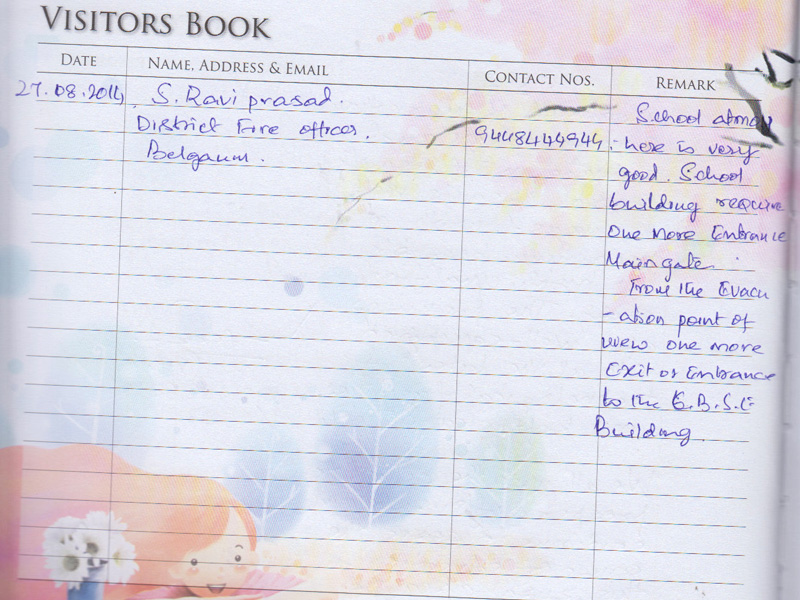 VISITORS BOOK
DATE NAME, ADDRESS & EMAIL CONTACT NOS. REMARK
27.08.2014 S. Ravi prasad.
District Fire officer.
Belgaum.
9448444944
School atmos
-here is very
good. School
building require
one more Entrance
Main gate.
From the Evacu
-ation point of
view one more
Exit or Entrance
to the C.B.S.E
Building.